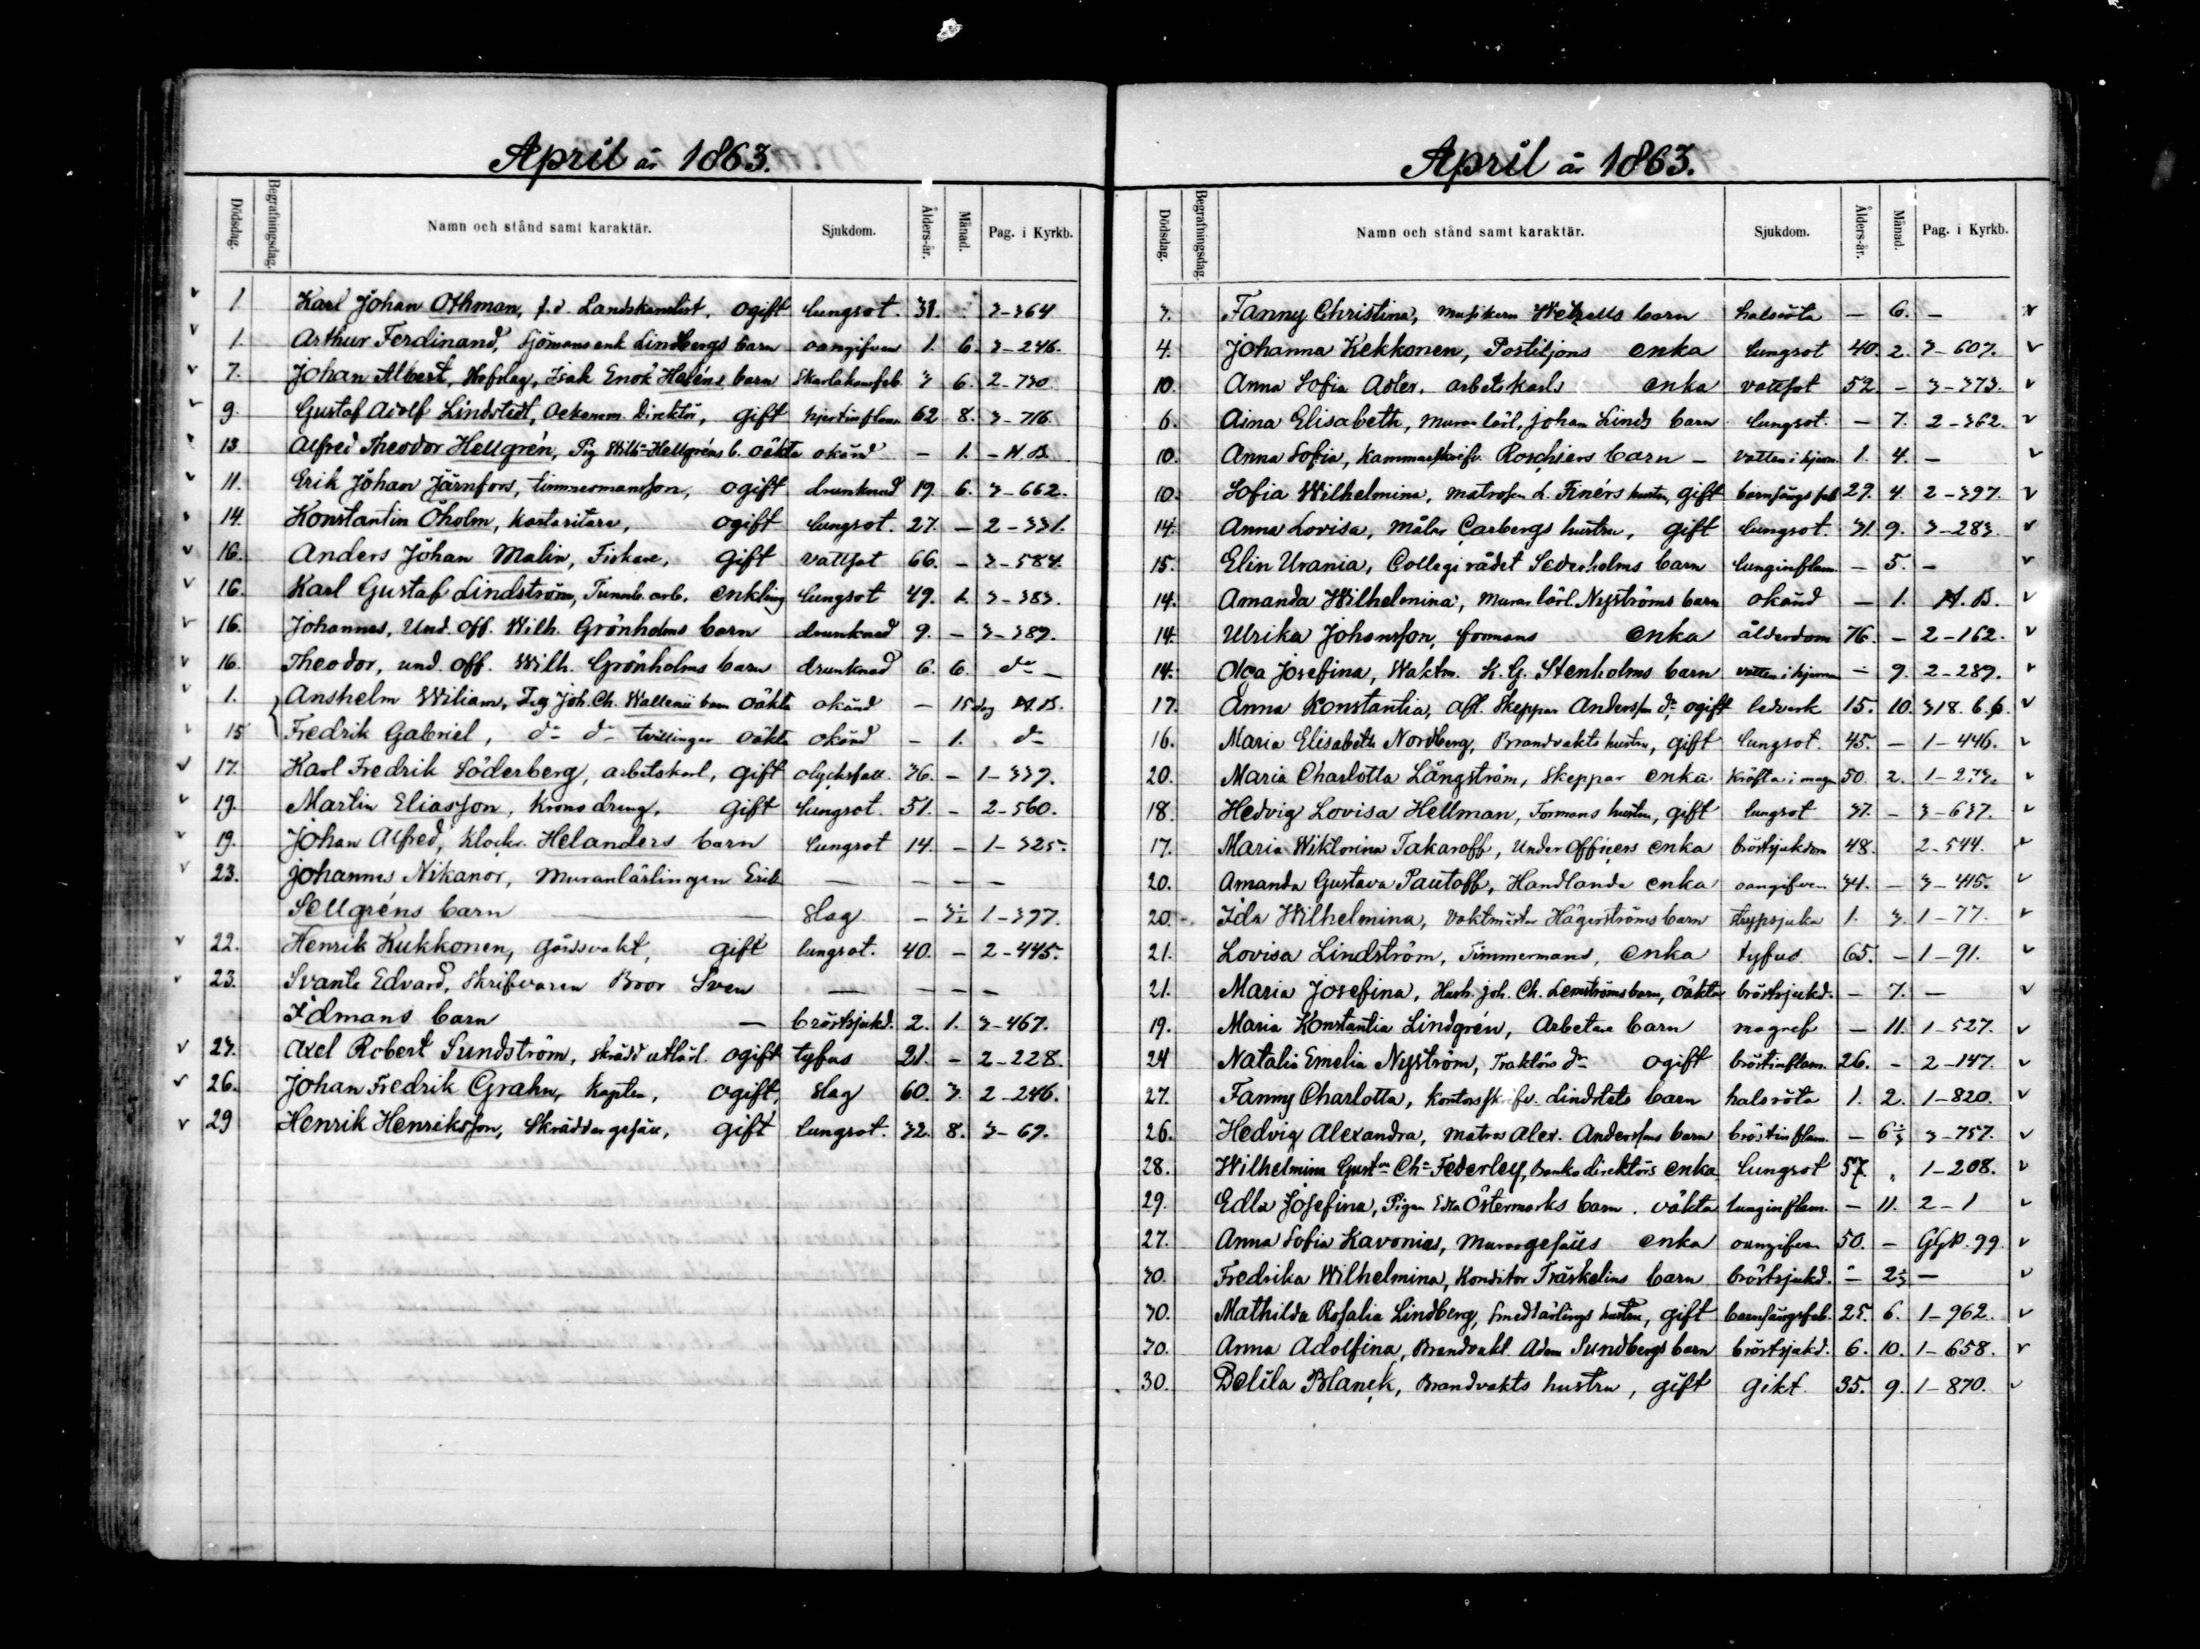 April år 1863.
Dödsdag. Begrafningsdag. Namn och stånd samt karaktär. Sjukdom. Ålders-år. Månad. Pag. i Kyrkb.
1. Karl Johan Othman, f.d. Landskanslist, ogift lungsot. 31. 3-364
1. Arthur Ferdinand, Sjömansenk Lindbergs barn oangifven 1. 6. 3-246.
7. Johan Albert, Isak Enok Heléns barn Skarlakansfeb. 3 6. 2-730.
9. Gustaf Adolf Lindstedt, Oekonom. Direktör, gift hjertinflam. 62 8. 3-716.
13 Alfred Theodor Hellgrén, Pig. Wilh. Hellgréns b. oäkta okänd – 1. – N.B.
11. Erik Johan Järnfors, timmermansson, ogift drunknad 19. 6. 3-662.
14. Konstantin Öholm, Kartaritare, ogift lungsot. 27. – 2-331.
16. Anders Johan Malin, Fiskare, gift vattsot 66. – 3-584.
16. Karl Gustaf Lindström, Tunnb. arb. enkling lungsot 49. 1. 3-383.
16. Johannes, Und. Off. Wilh. Grönholms barn drunknad 9. – 3-389.
16. Theodor, und. off. Wilh. Grönholms barn drunknad 6. 6. do –
1. Anshelm Wiliam, Pig Joh. Ch. Wallenii barn oäkta okänd – 15 dag N.B.
15 Fredrik Gabriel, do do tvillingar oäkta okänd – 1. do
17. Karl Fredrik Söderberg, arbetskarl, gift olycksfall. 36. – 1-339.
19. Martin Eliasson, Kronodräng, gift lungsot. 51. – 2-560.
19. Johan Alfred, Klock. Helanders barn lungsot 14. – 1-325.
23. Johannes Nikanor, Murarlärlingen Erik – – – –
Sellgréns barn – slag – 3½ 1-397.
22. Henrik Kukkonen, gårdsvakt, gift lungsot. 40. – 2-445.
23. Svante Edvard, Skrifvaren Broor Sven – – – –
Idmans barn – bröstsjukd. 2. 1. 3-467.
27. Axel Robert Sundström, skräddarlärl. ogift tyfus 21. – 2-228.
26. Johan Fredrik Grahn, Kapten, ogift, slag 60. 3. 2-246.
29 Henrik Henriksson, Skräddargesäll, gift lungsot. 32. 8. 3-69.
April år 1863.
Dödsdag. Begrafningsdag. Namn och stånd samt karaktär. Sjukdom. Ålders-år. Månad. Pag. i Kyrkb.
3. Fanny Christina, Musikern Wetzells barn halsröta – 6. –
4. Johanna Kekkonen, Postiljons enka lungsot 40. 2. 3-607.
10. Anna Sofia Adler, arbetskarls enka vattsot 52. – 3-373.
6. Aina Elisabeth, Murarlärl. Johan Linds barn lungsot. – 7. 2-362.
10. Anna Sofia, Kammarskrifv. Roschiers barn – vatten i hjern. 1. 4. –
10. Sofia Wilhelmina, matrosen L. Finérs hustru, gift barnsängsfeb. 29. 4. 2-397.
14. Anna Lovisa, Målar Carbergs hustru, gift lungsot. 31. 9. 3-283.
15. Elin Urania, Collegirådet Sederholms barn lunginflam. – 5. –
14. Amanda Wilhelmina, Murarlärl. Nyströms barn okänd – 1. N.B.
14. Ulrika Johansson, formans enka ålderdom 76. – 2-162.
14. Olga Josefina, Waktm. K. G. Stenholms barn vatten i hjernan – 9. 2-289.
17. Anna Konstantia, afl. Skeppar Andersson do, ogift ledverk 15. 10. 318. 6.6.
16. Maria Elisabeth Nordberg, Brandvakts hustru, gift lungsot. 45. – 1-446.
20. Maria Charlotta Långström, Skeppar enka kräfta i magen 50. 2. 1-273.
18. Hedvig Lovisa Hellman, Formans hustru, gift lungsot 37. – 3-637.
17. Maria Wiktorina Takaroff, Under Officers enka bröstsjukdom 48. 2-544.
20. Amanda Gustava Pautoff, Handlande enka oangifven 34. – 3-415.
20. Ida Wilhelmina, Vaktmästar Hägerströms barn strypsjuka 1. 3. 1-77.
21. Lovisa Lindström, Timmermans, enka tyfus 65. – 1-91.
21. Maria Josefina, Hush. Joh. Ch. Lemströms barn, oäkta bröstsjukd. – 7. –
19. Maria Konstantia Lindgrén, Arbetare barn magref – 11. 1-527.
24 Natalia Emelia Nyström, Traktörs do ogift bröstinflam. 26. – 2-147.
27. Fanny Charlotta, Kontorsskrifv. Lindstets barn halsröta 1. 2. 1-820.
26. Hedvig Alexandra, Matros Alex. Anderssons barn bröstinflam. – 6⅓ 3-757.
28. Wilhelmina Gust. Ch. Federley, Banko direktörs enka lungsot 57. „ 1-208.
29. Edla Josefina, Pigan Edla Östermarks barn. oäkta lunginflam. – 11. 2-1
27. Anna Sofia Kavonius, Murargesälls enka oangifven 50. – 99.
30. Fredrika Wilhelmina, Konditor Träskelins barn bröstsjukd. – 2⅔ –
30. Mathilda Rosalia Lindberg, Smedlärlings hustru, gift barnsängsfeb. 25. 6. 1-962.
30. Anna Adolfina, Brandvakt. Adam Sundbergs barn bröstsjukd. 6. 10. 1-658.
30. Delila Blanek, Brandvakts hustru, gift gikt 35. 9. 1-870.